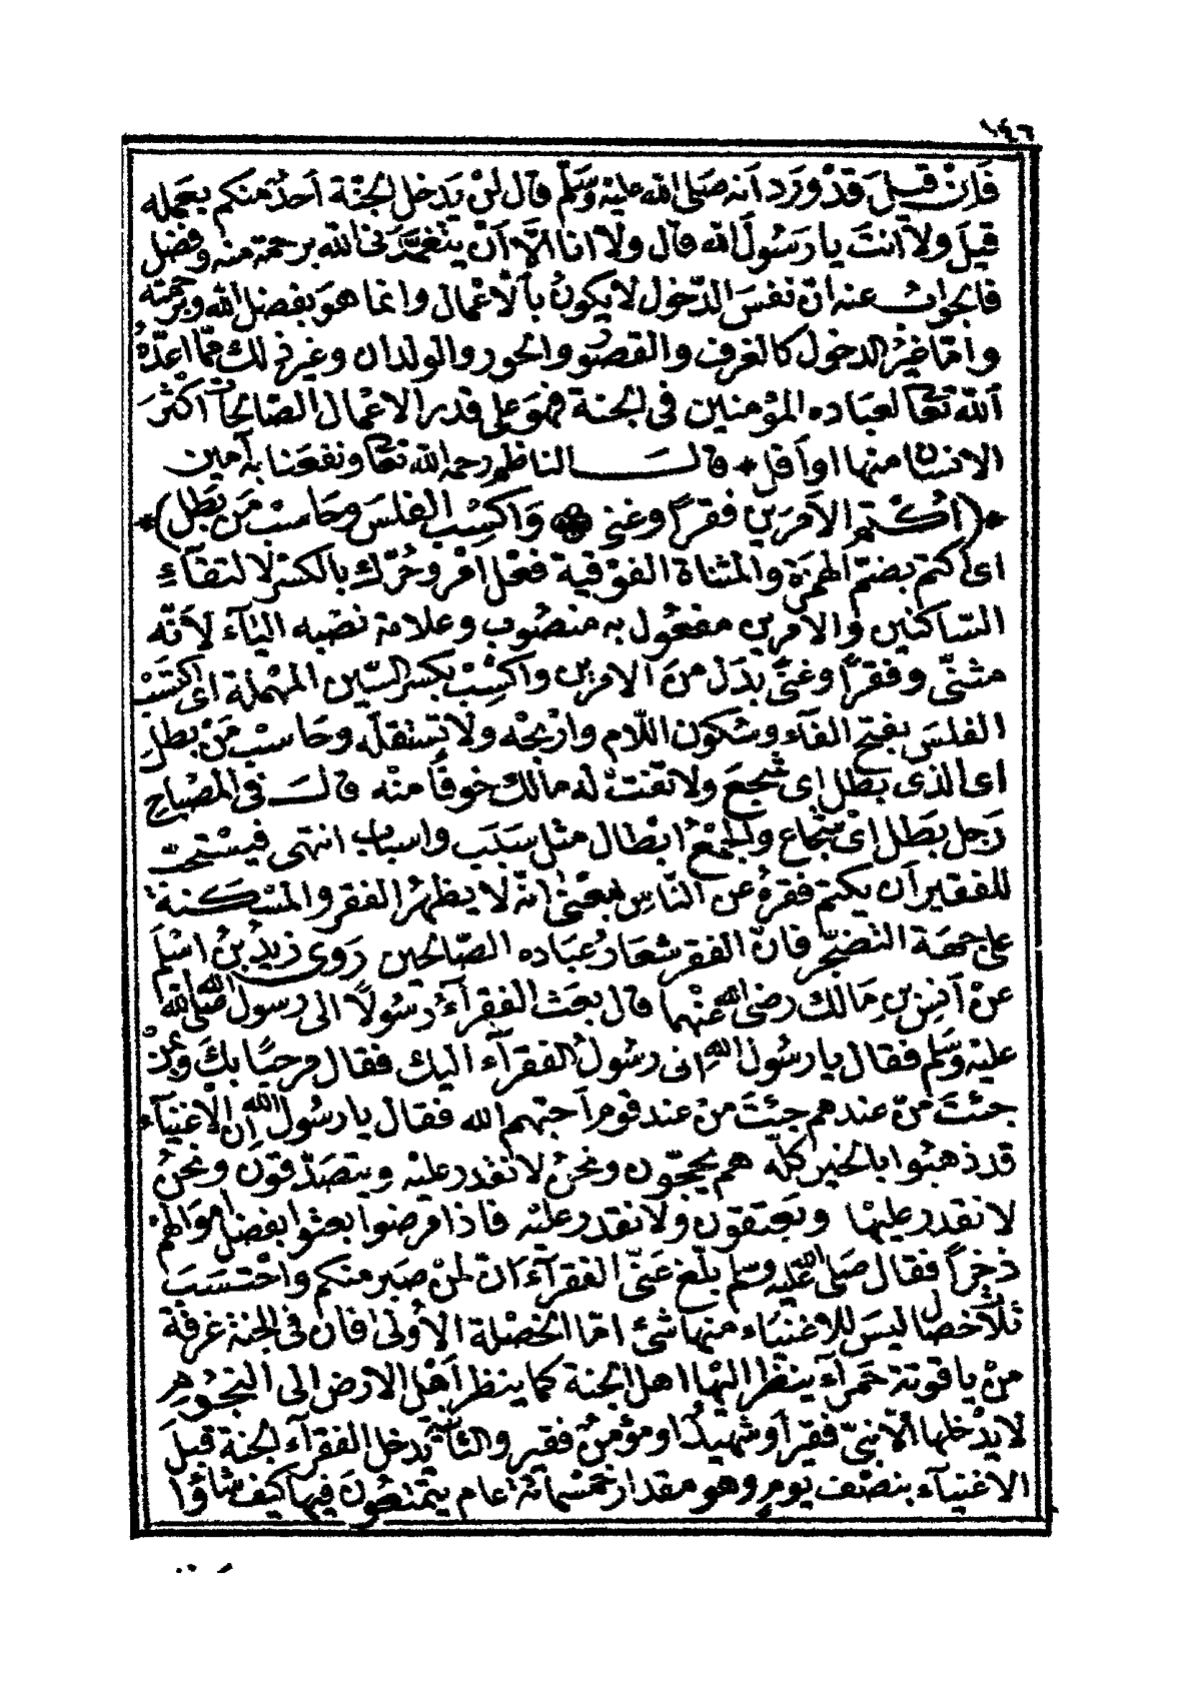 ١٤٦
فَاِنْ قيلَ قَدْ وَرَد اَنه صَلى الله عليْه وَسَلّم قال لنْ يَدخل الجنّة اَحدٌ منكم بعَمله
قيلَ ولا اَنتَ يا رَسُولَ الله قال ولا انا الّا اَنْ يتغمَّدَنى الله برحمة منه وفضل
فالجوابُ عنه انّ نفسَ الدّخول لا يكونُ بالاعْمال وانما هوَ بفضل الله ورَحمته
وامّا غيْرُ الدخول كالغرف والقصُور والحور والولدان وغير ذ لك ممّا اعدّهُ
اَلله تعالى لعبَاده المؤمنين فى الجنة فهوَ على قدر الاعْمال الصّالحات اكثرَ
الانسَان منها اوْ اَقل * قالَ الناظم رحمه الله تعالى ونفعَنا به آمين
*(اُكتُم الاَمرَيْن فقرًا وغنى ۞ وَاكسِبْ الفلسَ وحَاسبْ مَن بَطَل)*
اى اكتم بضمّ الهمزة والمثناة الفوْقية فعْل امْر وحُرّك بالكسْر لالتقآءِ
السّاكنين والامريْن مفعُول به منصُوب وعلامة نصْبه اليَاء لاَنّه
مثنّى وفقرًا وغنىً بدَل منَ الامريْن واكسِبْ بكسْر السّين المهْملة اى اكتسَبْ
الفلسَ بفتح الفآء وسُكون اللّام وارْبحْه ولا تسْتقلّه وحَاسبْ مَنْ بطل
اى الذى بطل اى شجعَ ولا تفتْ له مالك خوفًا منْه قالَ فى المصْباح
رَجل بَطَل اىْ شجَاع والجمْعُ ابْطال مثل سَبَب واسباب انتهى فيسْتحبّ
للفقير اَن يكتم فقرهُ عن النّاس بمعْنىٰ انّه لا يظهرُ الفقر والمسْكنة
على جهَة التضجّر فانّ الفقر شعَارُ عبَاده الصّالحين رَوى زيدُ بنُ اسْلم
عنْ اَنس بن مَالك رضى الله عنْهما قال بعَث الفقرآءُ رَسُولًا الى رسول الله صَلى الله
عليْه وَسَلم فقال يا رسُول الله انى رسُولُ الفقرآء اليك فقال مرحبًا بكَ وبمنْ
جئتَ منْ عندهم جئتَ منْ عند قوم اَحبّهم الله فقال يا رسُول الله اِن الاغنيَآء
قد ذهبُوا بالخير كلّه هم يحجّون ونحنُ لا نقدر عليْه ويتصَدّقون ونحنُ
لا نقدر عليها ويَعتقون ولا نقدر عليْه فاذا مرضوا بعثوا بفضل امْوَالهم
ذخرًا فقال صَلى الله عليه وسلم بلّغ عَنّى الفقرآء انّ لمنْ صبَر منكم واحْتسَبَ
ثلاث خصَال ليسَ للاغنيَاء منها شئ امّا الخصْلة الاُولىٰ فان فى الجنة غرفة
منْ ياقوتة حَمرآء ينظر اليْها اهل الجنة كما ينظر اَهْل الارض الى النجُوم
لا يدْخلها الّا نبىّ فقير اَو شهيدٌ او مؤمنٌ فقير والثانية يدخل الفقرآء الجنة قبلَ
الاغنيآء بنصْف يوم وهو مقدارُ خمْسمائة عام يتمتعُونَ فيها كيْف شاؤا